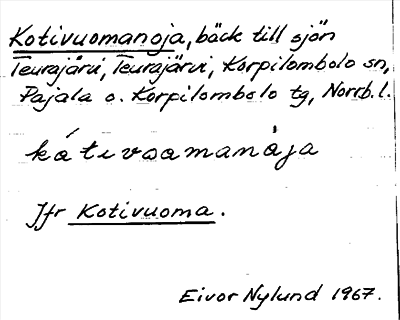 Kotivuomanoja, bäck till sjön
Teurajärvi, Teurajärvi, Korpilombolo sn,
Pajala o. Korpilombolo tg, Norrb. l.
kátivaamanája
Jfr Kotivuoma.
Eivor Nylund 1967.